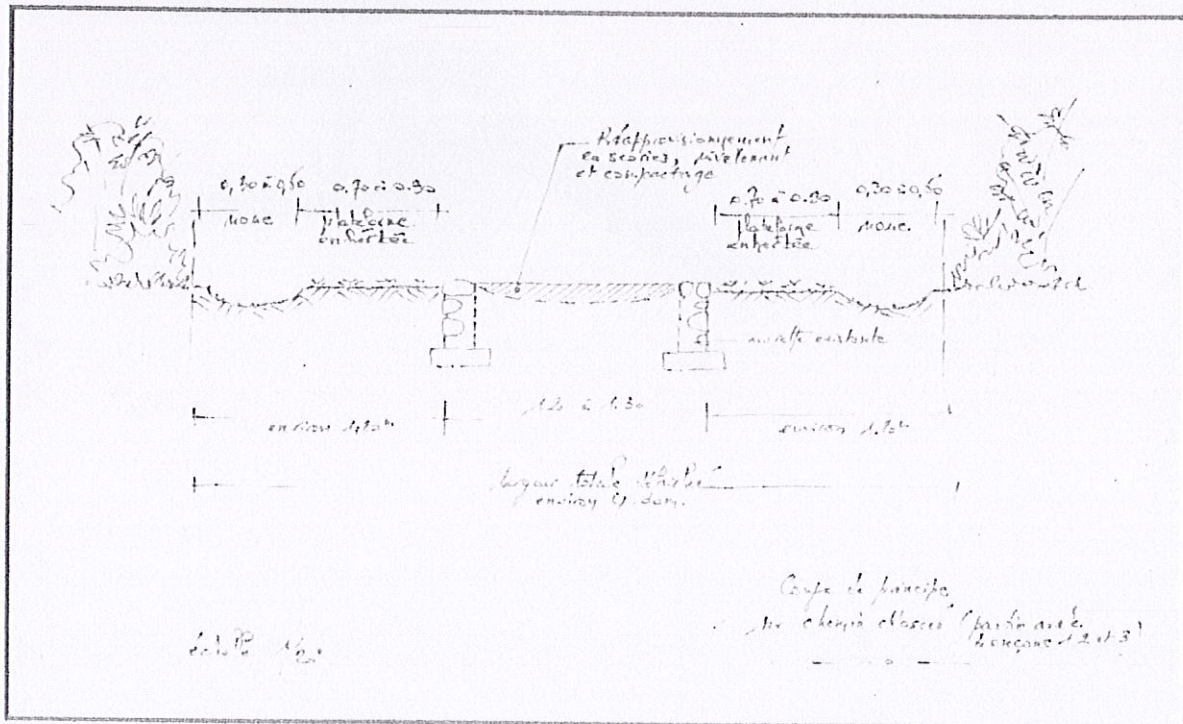 Réapprovisionnement
en scories, nivelement
et compactage
0,30 à 0,50
noue
0.70 à 0.90
plateforme
enherbée
0.70 à 0.90
plateforme
enherbée
0,30 à 0,50
noue.
murette existante
environ 1,20 m
1.20 à 1.30
environ 1.20 m
largeur totale
environ
Coupe de principe
chemin d'accès (partie
tronçons 2 et 3)
échelle